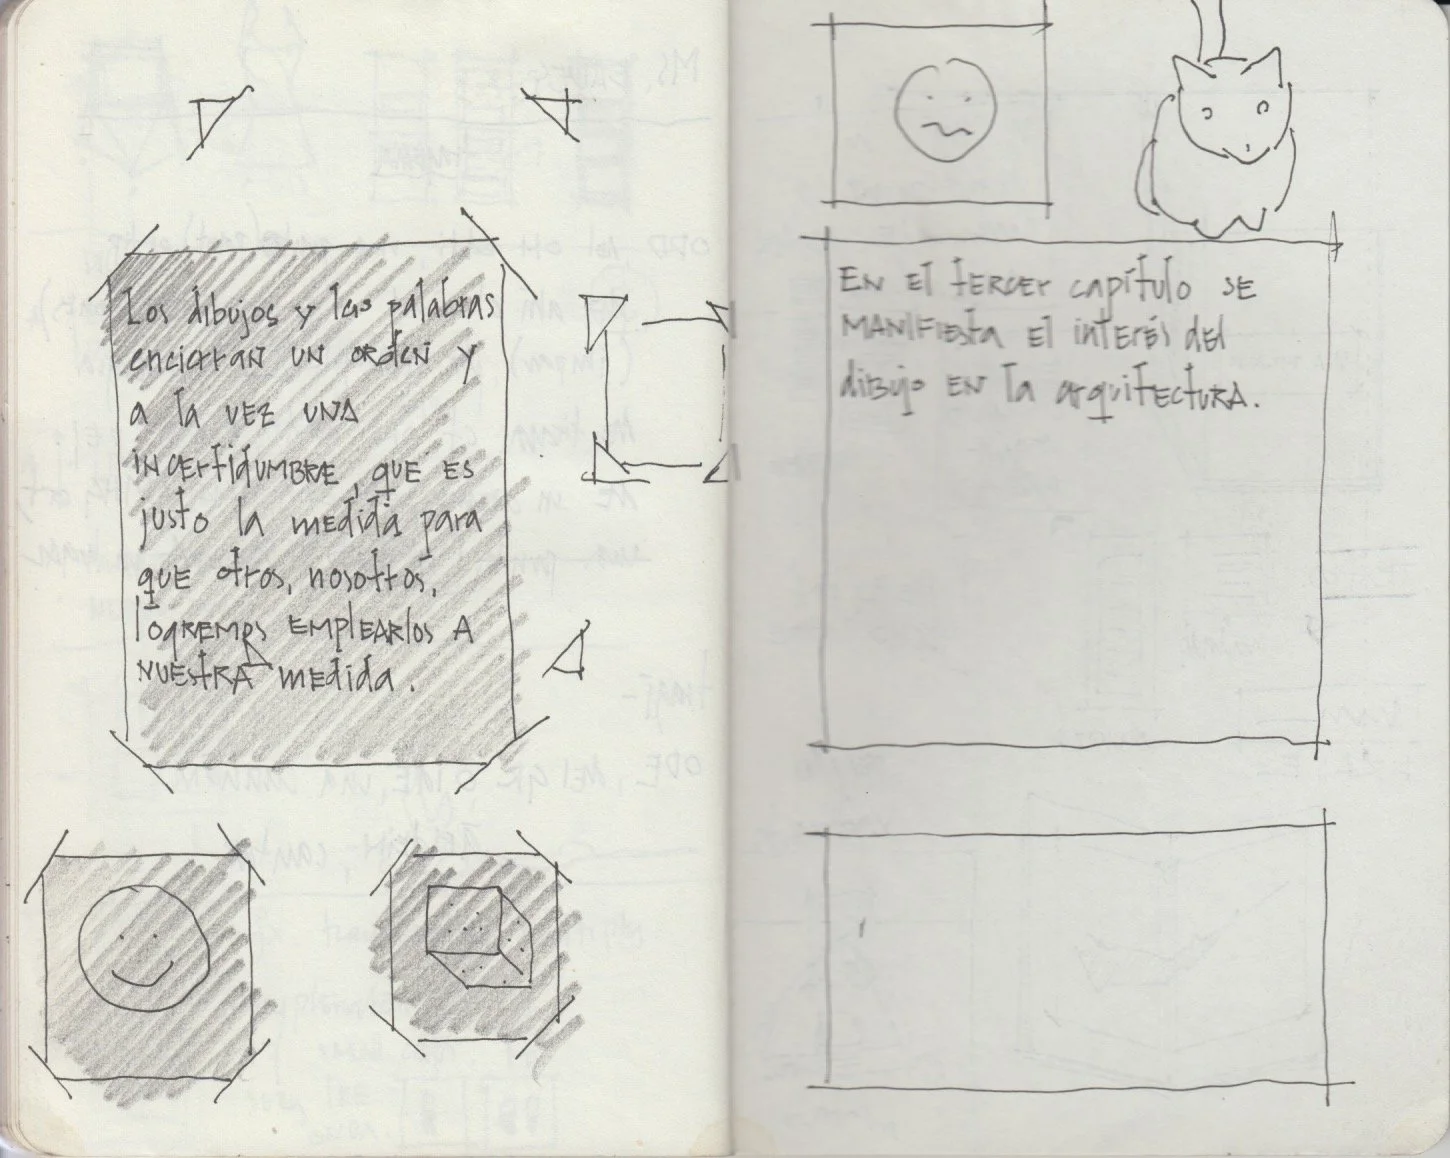 Los dibujos y las palabras
encierran un orden y
a la vez una
incertidumbre, que es
justo la medida para
que otros, nosotros,
logremos emplearlos a
nuestra medida.
En el tercer capítulo se
manifiesta el interés del
dibujo en la arquitectura.